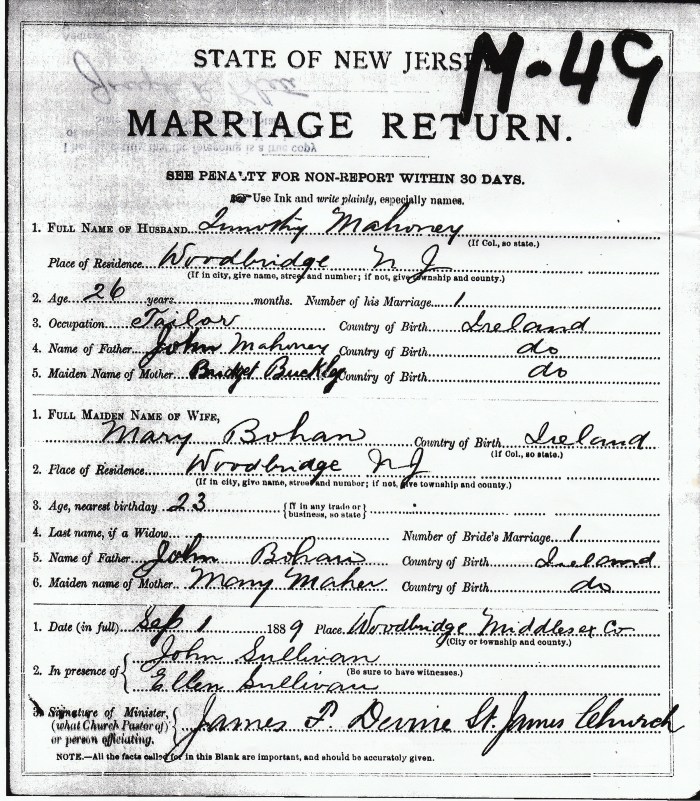 STATE OF NEW JERSEY
M-49
MARRIAGE RETURN.
SEE PENALTY FOR NON-REPORT WITHIN 30 DAYS.
Use Ink and write plainly, especially names.
1. FULL NAME OF HUSBAND Timothy Mahoney
(If Col., so state.)
Place of Residence Woodbridge N J
(If in city, give name, street and number; if not, give township and county.)
2. Age 26 years months. Number of his Marriage 1
3. Occupation Tailor Country of Birth Ireland
4. Name of Father John Mahoney Country of Birth do
5. Maiden Name of Mother Bridget Buckley Country of Birth do
1. FULL MAIDEN NAME OF WIFE,
Mary Bohan Country of Birth Ireland
(If Col., so state.)
2. Place of Residence Woodbridge NJ
(If in city, give name, street and number; if not, give township and county.)
3. Age, nearest birthday 23 {If in any trade or business, so state}
4. Last name, if a Widow Number of Bride's Marriage 1
5. Name of Father John Bohan Country of Birth Ireland
6. Maiden name of Mother Mary Maher Country of Birth do
1. Date (in full) Sep 1 1889 Place Woodbridge Middlesex Co
(City or township and county.)
2. In presence of { John Sullivan
(Be sure to have witnesses.)
Ellen Sullivan
3. Signature of Minister,
(what Church Pastor of)
or person officiating. } James P. Devine St. James Church
NOTE.—All the facts called for in this Blank are important, and should be accurately given.